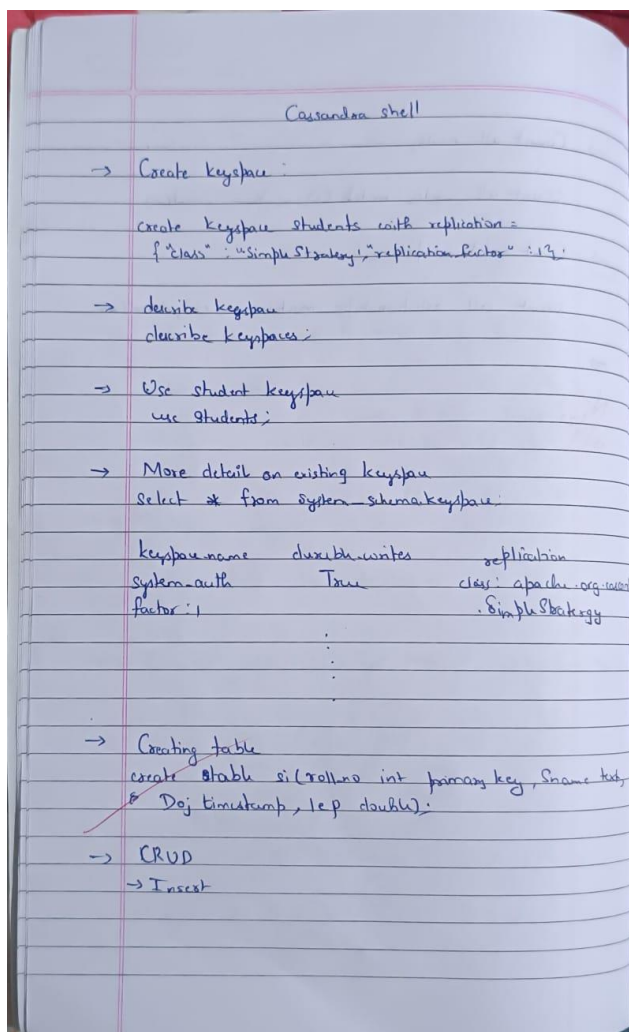 Cassandra shell
→ Create keyspace :
create keyspace students with replication =
{ "class" : "Simple Strategy", "replication_factor" : 1};
→ describe keyspace
describe keyspaces;
→ Use student keyspace
use students;
→ More detail on existing keyspace
select * from system_schema.keyspace;
keyspace_name durable_writes replication
system_auth True class: apache.org.cassan
factor : 1 .Simple Stratergy
→ Creating table
create stable si (roll_no int primary key, Sname text,
Doj timestamp, lep double);
→ CRUD
→ Insert